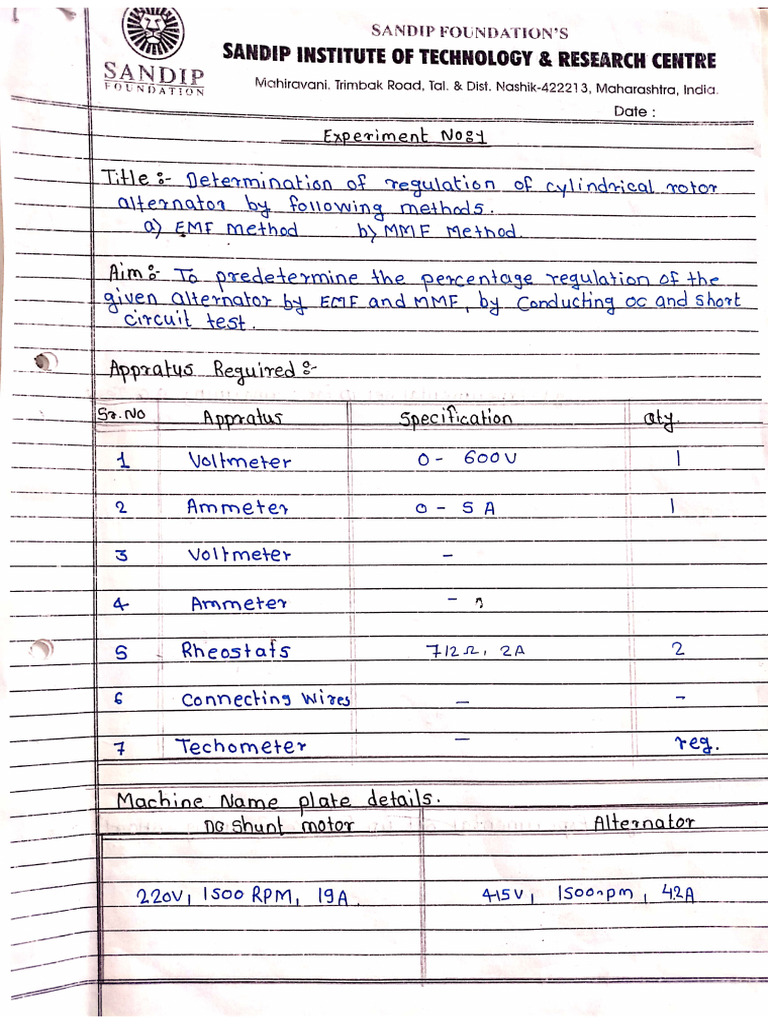 SANDIP FOUNDATION'S
SANDIP INSTITUTE OF TECHNOLOGY & RESEARCH CENTRE
SANDIP
FOUNDATION
Mahiravani, Trimbak Road, Tal. & Dist. Nashik-422213, Maharashtra, India.
Date :
Experiment No:
Title :- Determination of regulation of cylindrical rotor
alternator by following methods.
a) EMF Method b) MMF Method
Aim :- To predetermine the percentage regulation of the
given alternator by EMF and MMF, by Conducting OC and short
circuit test.
Appratus Required :-
Sr.No Appratus Specification Qty
1 Voltmeter 0 - 600V 1
2 Ammeter 0 - 5 A 1
3 Voltmeter -
4 Ammeter -
5 Rheostats 712Ω, 2A 2
6 Connecting Wires - -
7 Techometer - req.
Machine Name plate details.
DC Shunt motor Alternator
220V, 1500 RPM, 19A 415V, 1500rpm, 4.2A